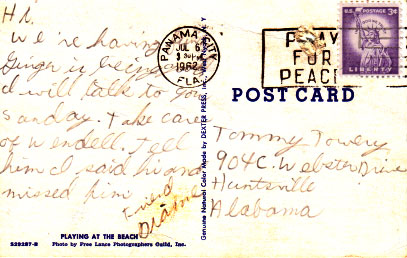 Hi.
We're having
Ginger is being
I will talk to you
Sunday. Take care
of Wendell. Tell
him I said hi and
missed him
Friend
Dianne
PLAYING AT THE BEACH
S29287-B Photo by Free Lance Photographers Guild, Inc.
Genuine Natural Color Made by DEXTER PRESS, INC.
PANAMA CITY
JUL 6
1962
FLA.
PRAY
FOR
PEACE
U.S. POSTAGE 3¢
LIBERTY
POST CARD
Tommy Towery
904 C. Webster Drive
Huntsville
Alabama